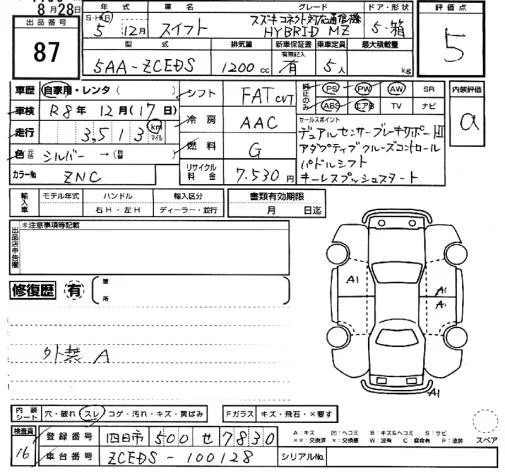 8月28日
出品番号
87
年式 車名 グレード ドア・形状 評価点
S・H・R 5年 12月 スイフト スズキコネクト対応通信機 HYBRID MZ 5・箱 5
型式 排気量 新車保証書 乗車定員 最大積載量
有無記入
5AA-ZCEDS 1200cc 有 5人 kg
車歴 自家用・レンタ( ) シフト FAT CVT 純正のみ PS PW AW SR 内装評価
車検 R8年 12月(17日) ABS エアB TV ナビ a
走行 3,513 km マイル 冷房 AAC セールスポイント
デュアルセンサーブレーキサポートII
アダプティブクルーズコントロール
パドルシフト
キーレスプッシュスタート
色 元色 シルバー →(替 燃料 G
カラーNo ZNC リサイクル料金 7.530円
輸入車 モデル年式 ハンドル 輸入区分 書類有効期限
年 右H・左H ディーラー・並行 月 日迄
出品店申告欄 ※注意事項等記載
修復歴 有 箇所
A1 A1 A1
外装 A
A1
内装シート 穴・破れ スレ コゲ・汚れ・キズ・黄ばみ Fガラス キズ・飛石・×要す
A:キズ U:ヘコミ B:キズ&ヘコミ S:サビ
××:交換済 ×:交換要 W:波有 C:腐食有 P:塗装
スペア
検査員 16
登録番号 四日市 500 せ 7830
車台番号 ZCEDS-100128 シリアルNo.